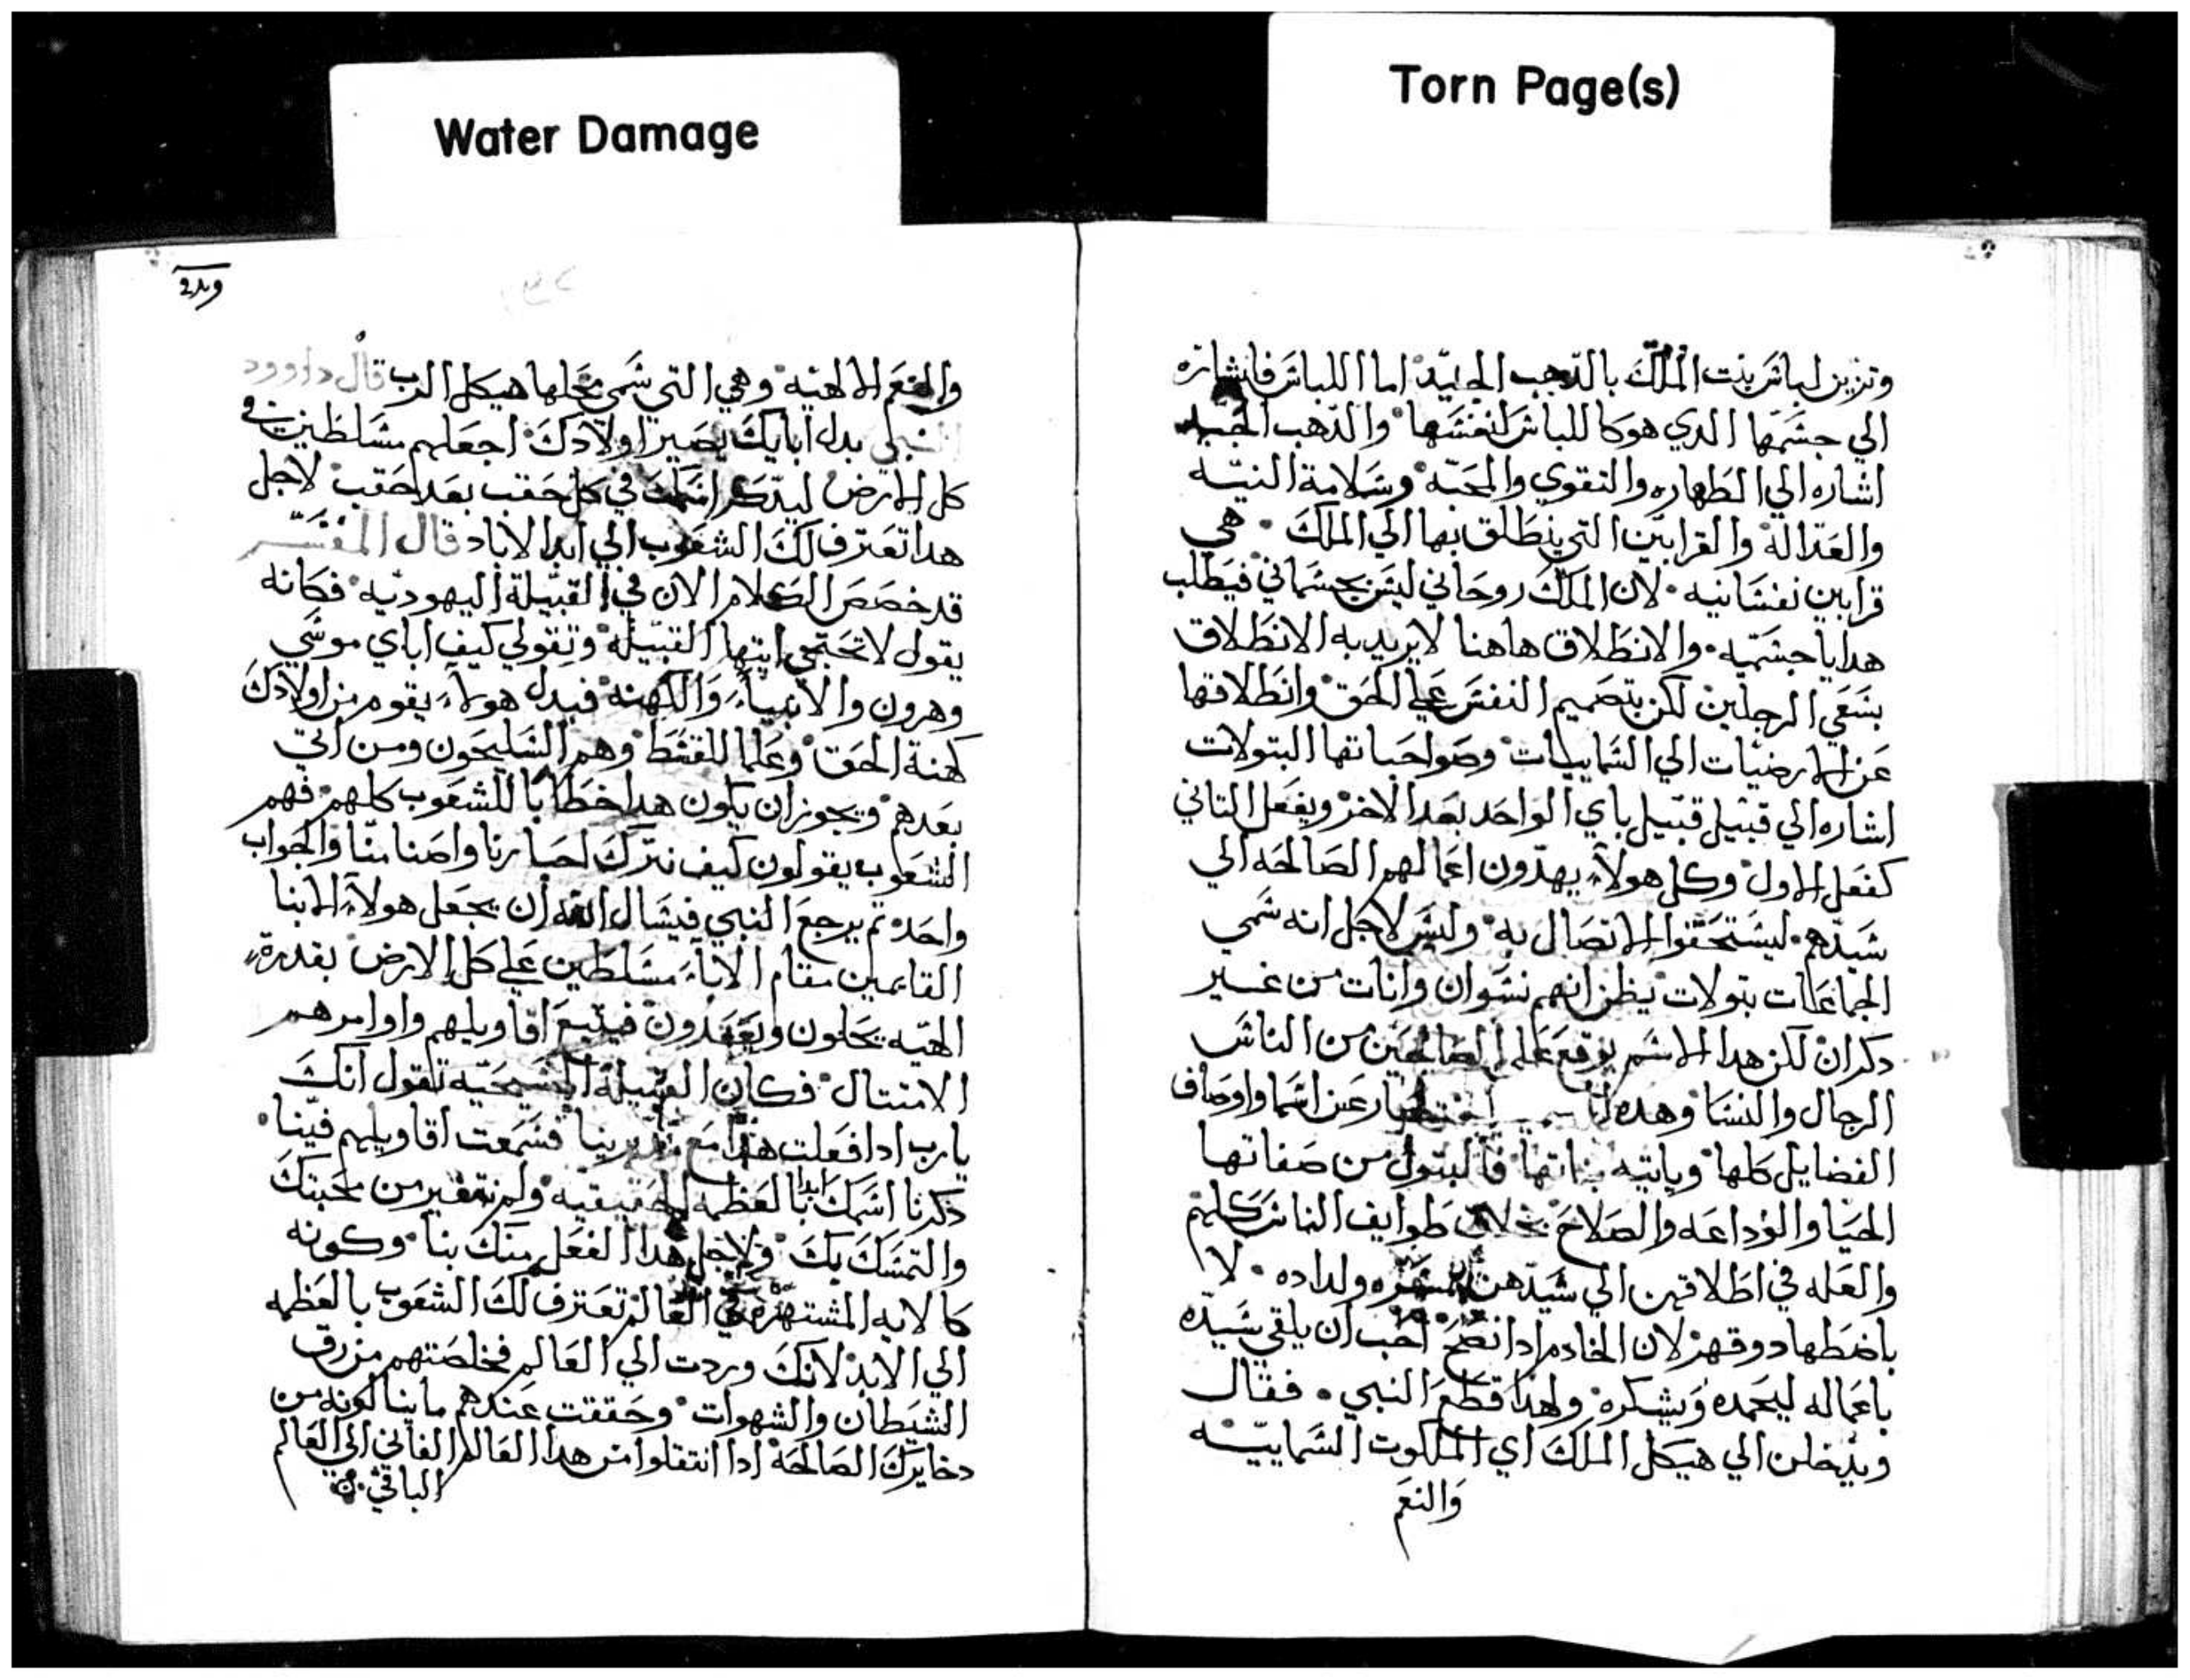 Water Damage
Torn Page(s)
وتزين لباس بنت الملك بالدهب الجيد اما اللباس فاشاره
الي جسمها الدي هو كاللباس لنفسها والدهب الجيد
اشاره الي الطهاره والتقوي والمحبه وسلامة النيه
والعداله والقرابين التي ينطلق بها الي الملك هي
قرابين نفسانيه لان الملك روحاني ليس بجسماني فيطلب
هدايا جسميه والانطلاق هاهنا لا يريد به الانطلاق
بسعي الرجلين لكن بتصميم النفس علي الحق وانطلاقها
عن الارضيات الي السماييات وصواحباتها البتولات
اشاره الي قبيل قبيل ياي الواحد بعد الاخر ويفعل التاني
كفعل الاول وكل هولاء يهدون اعمالهم الصالحه الي
سيدهم ليستحقوا الاتصال به وليس لاجل انه سمي
الجماعات بتولات يظن انهم نسوان وانات من غير
دكران لكن هدا الاسم يوقع علي الصالحين من الناس
الرجال والنسا وهده عن اسما واوصاف
الفضايل كلها فالبتول من صفاتها
الحيا والوداعه والصلاح بخلاف طوايف الناس كلهم
والعله في اطلاقهن الي سيدهن ولداده لا
باضطهاد وقهر لان الخادم ادا نصح احب ان يلقي سيده
باعماله ليحمده ويشكره ولهدا قطع النبي فقال
ويدخلن الي هيكل الملك اي الملكوت السماييه
والنعم
والنعم الالهيه وهي التي سمي محلها هيكل الرب قال داوود
النبي بدل ابايك يصير اولادك اجعلهم مسلطين في
كل الارض ليدكر اسمك في كل حقب بعد احقب لاجل
هدا تعترف لك الشعوب الي ابد الاباد قال المفسر
قد خصص الكلام الان في القبيله اليهوديه فكانه
يقول لا تحتجي ايتها القبيله وتقولي كيف اباي موسي
وهرون والانبياء والكهنه فبدل هولاء يقوم من اولادك
كهنة الحق وعلما للقسط وهم السليحون ومن اتي
بعدهم ويجوز ان يكون هدا خطابا للشعوب كلهم فهم
الشعوب يقولون كيف نترك احبارنا واصنامنا والجواب
واحد تم يرجع النبي فيسال الله ان يجعل هولاء الابنا
القايمين مقام الاباء مسلطين علي كل الارض بقدرة
الهيه يحلون ويعقدون فيتبع اقاويلهم واوامرهم
الامتتال فكان القبيله المسيحيه تقول انك
يارب ادا فعلت هدا مع مدبرينا فسمعت اقاويلهم فينا
دكرنا اسمك ابدا بالعظمه الحقيقيه ولم نتغير من محبتك
والتمسك بك ولاجل هدا الفعل منك بنا وكونه
كالايه المشتهره في العالم تعترف لك الشعوب بالعظمه
الي الابد لانك وردت الي العالم فخلصتهم من رق
الشيطان والشهوات وحققت عندهم ماينالونه من
دخايرك الصالحه ادا انتقلوا من هدا العالم الفاني الي العالم
الباقي